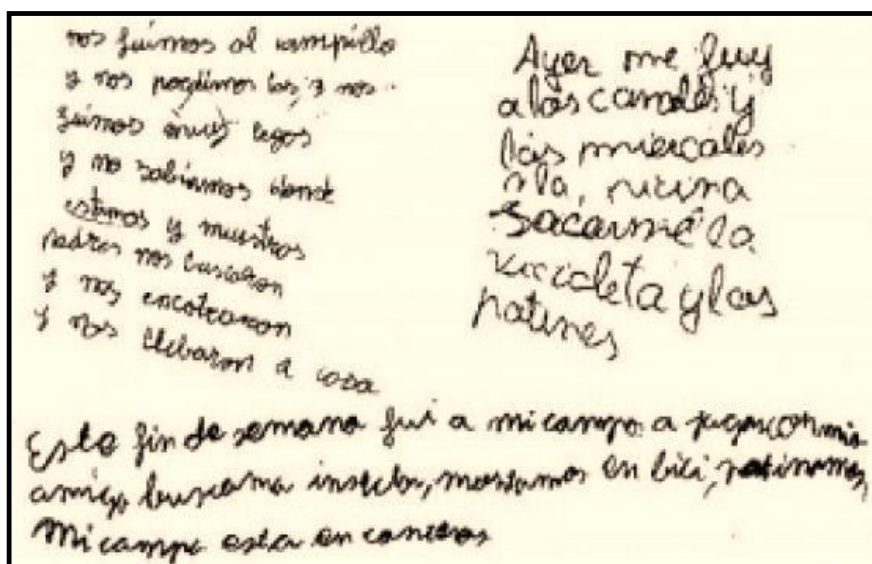 nos fuimos al campillo
y nos perdimos los 3 nos
fuimos muy legos
y no sabiamos donde
estamos y nuestros
padres nos buscaron
y nos encotraron
y nos llebaron a casa
Ayer me fuy
a las canales y
los miercales
a la, picina
sacarme la
vicicleta y los
patines
Este fin de semana fui a mi campo a jugar con mis
amigo buscama insectos, montamos en bici, patinamos,
Mi campo esta en